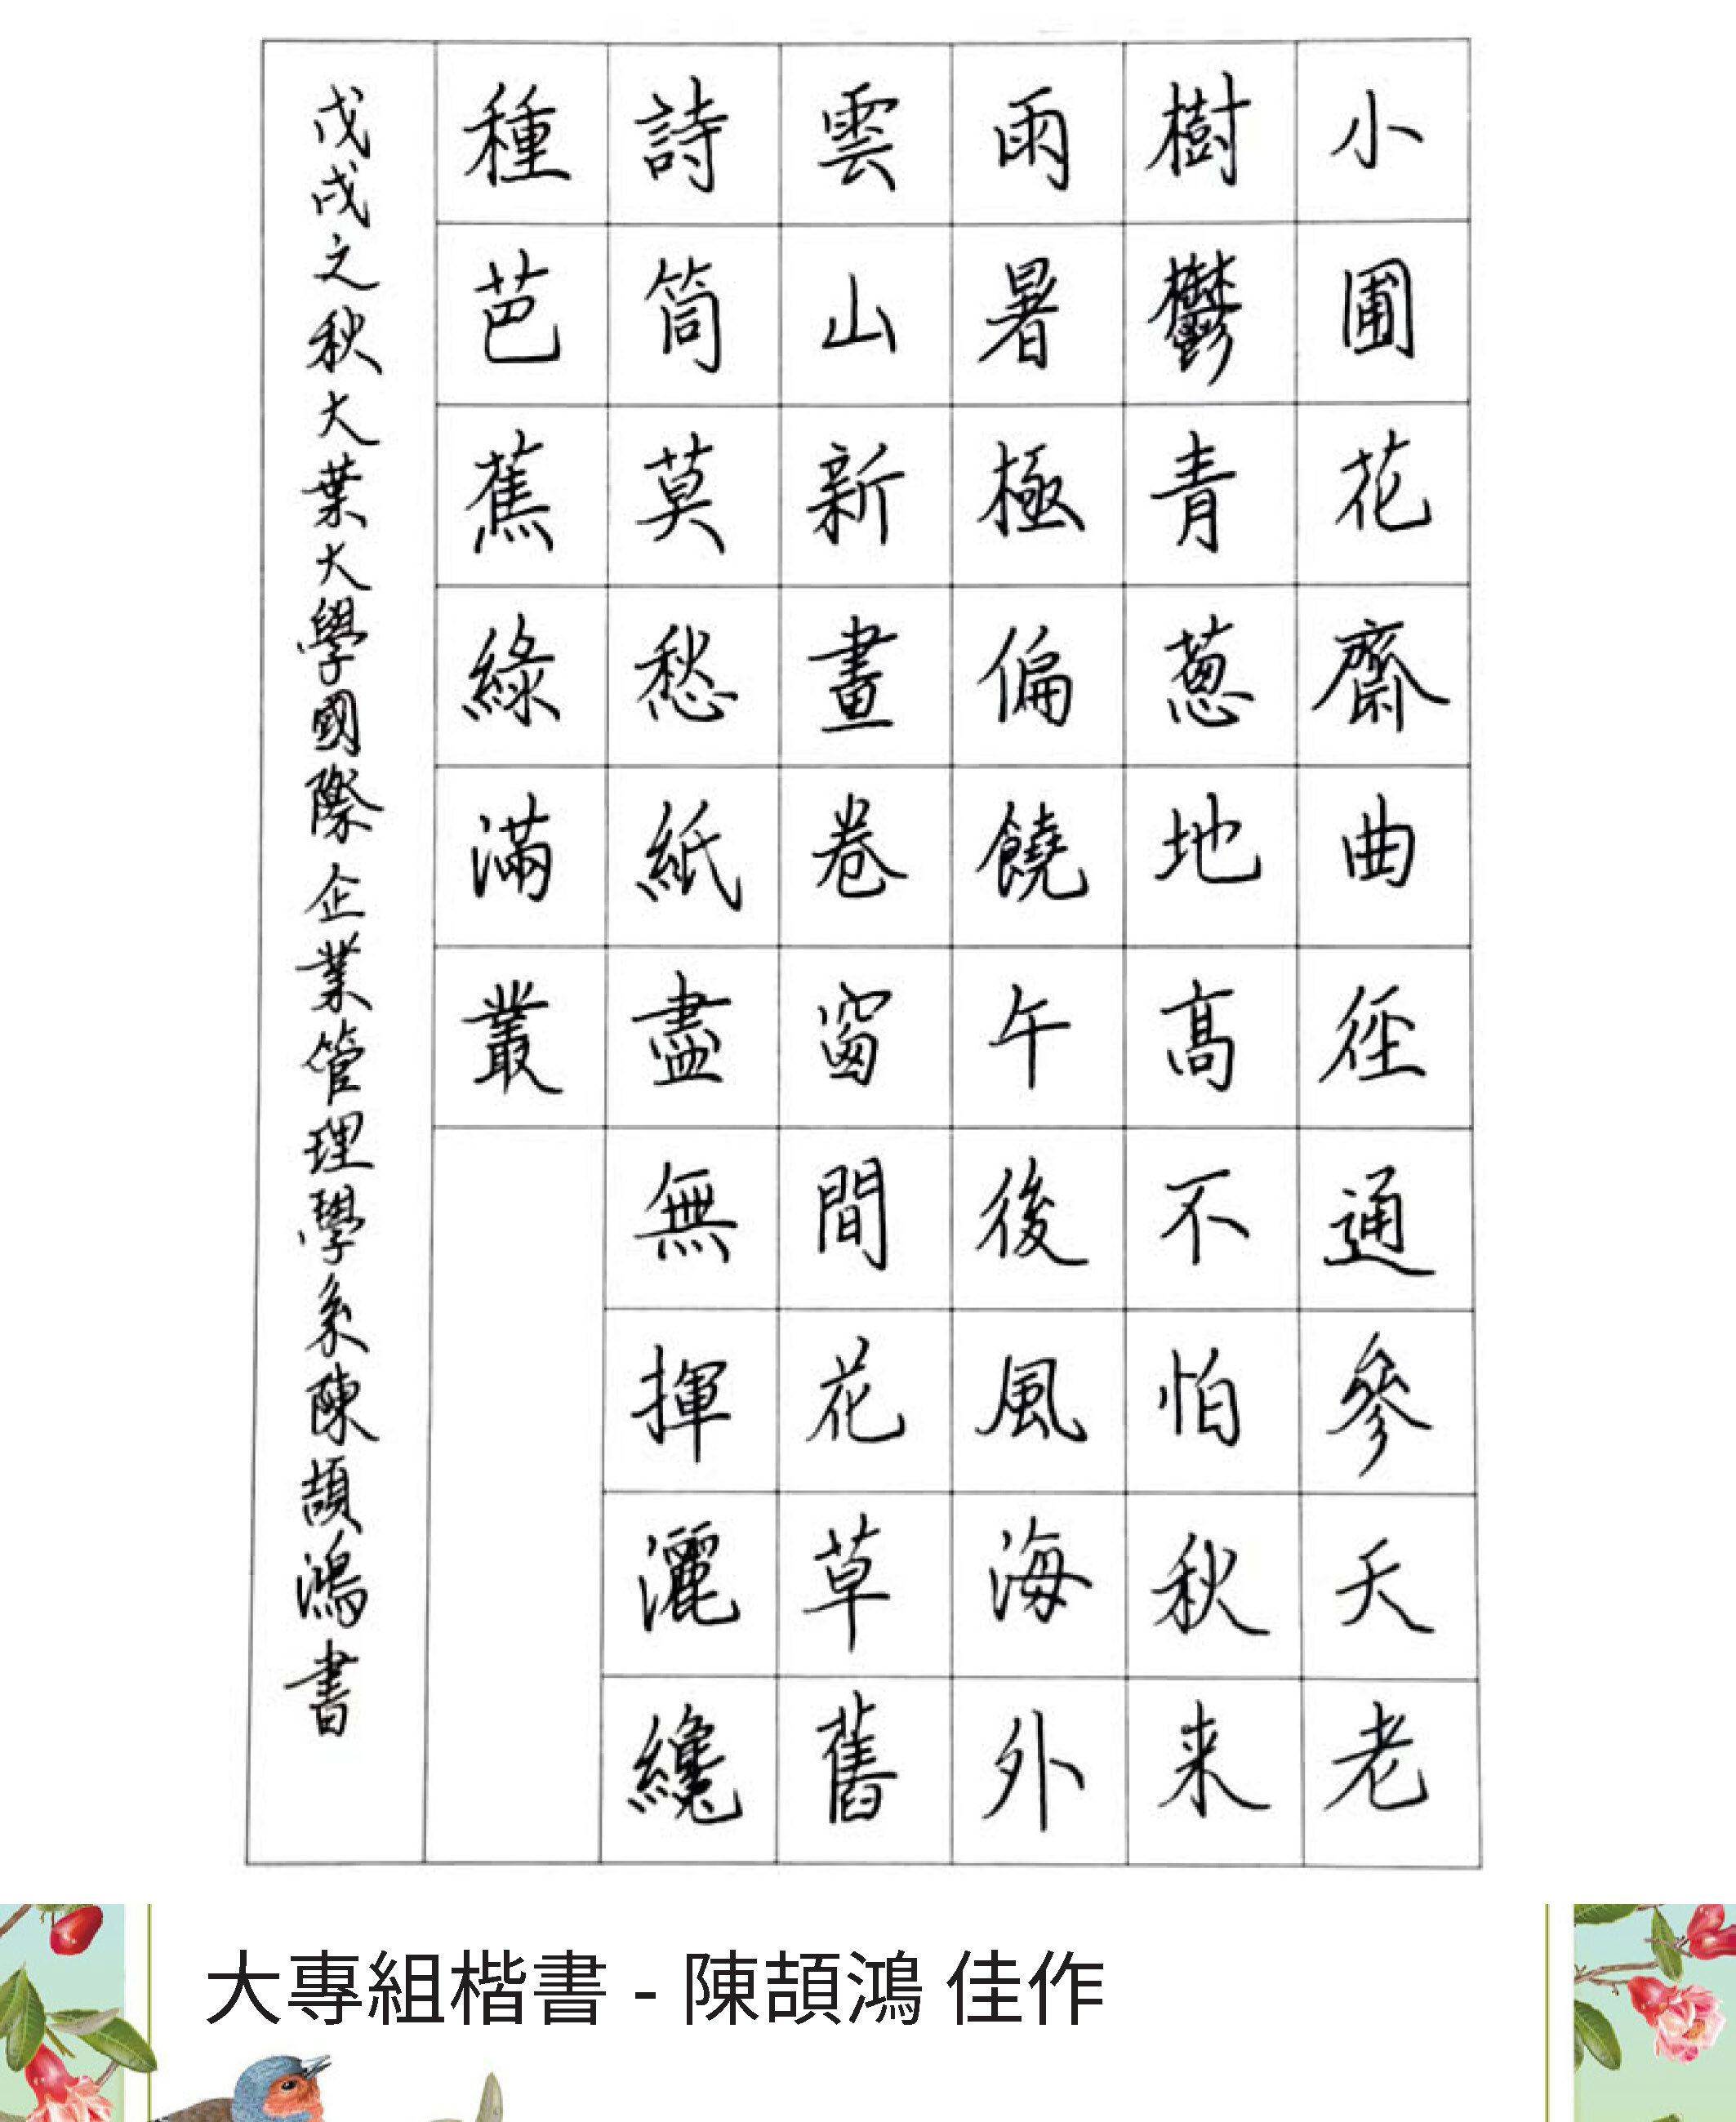 小圃花齋曲徑通參天老
樹鬱青蔥地高不怕秋来
雨暑極偏饒午後風海外
雲山新畫卷窗間花草舊
詩筒莫愁紙盡無揮灑纔
種芭蕉綠滿叢
戊戌之秋大葉大學國際企業管理學系陳頡鴻書
大專組楷書 - 陳頡鴻 佳作